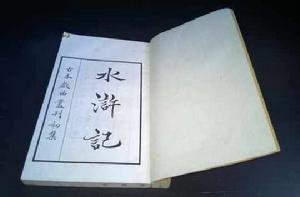 水滸記
古本戲曲叢刊初集